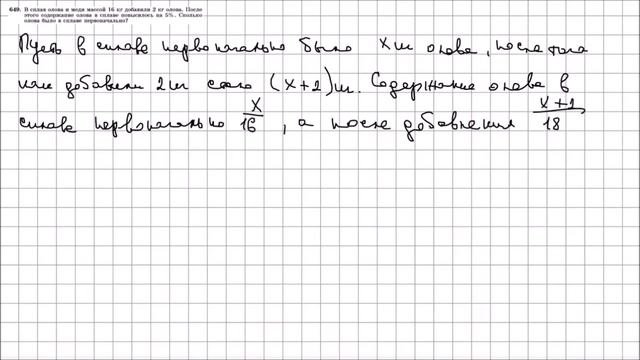 649. В сплав олова и меди массой 16 кг добавили 2 кг олова. После
этого содержание олова в сплаве повысилось на 5%. Сколько
олова было в сплаве первоначально?
Пусть в сплаве первоначально было x кг олова, после того
как добавили 2 кг стало (x+2) кг. Содержание олова в
сплаве первоначально x/16, а после добавления x+2/18